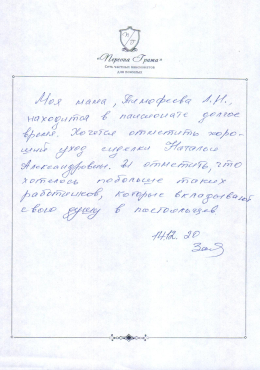 «Первая Гряжа»
Сеть частных пансионатов
для пожилых
Моя мама, Тимофеева Л.Н.,
находится в пансионате долгое
время. Хочется отметить хоро-
ший уход сиделки Натальи
Александровны. И отметить, что
хотелось побольше таких
работников, которые вкладывают
свою душу в постояльцев
14.12.20